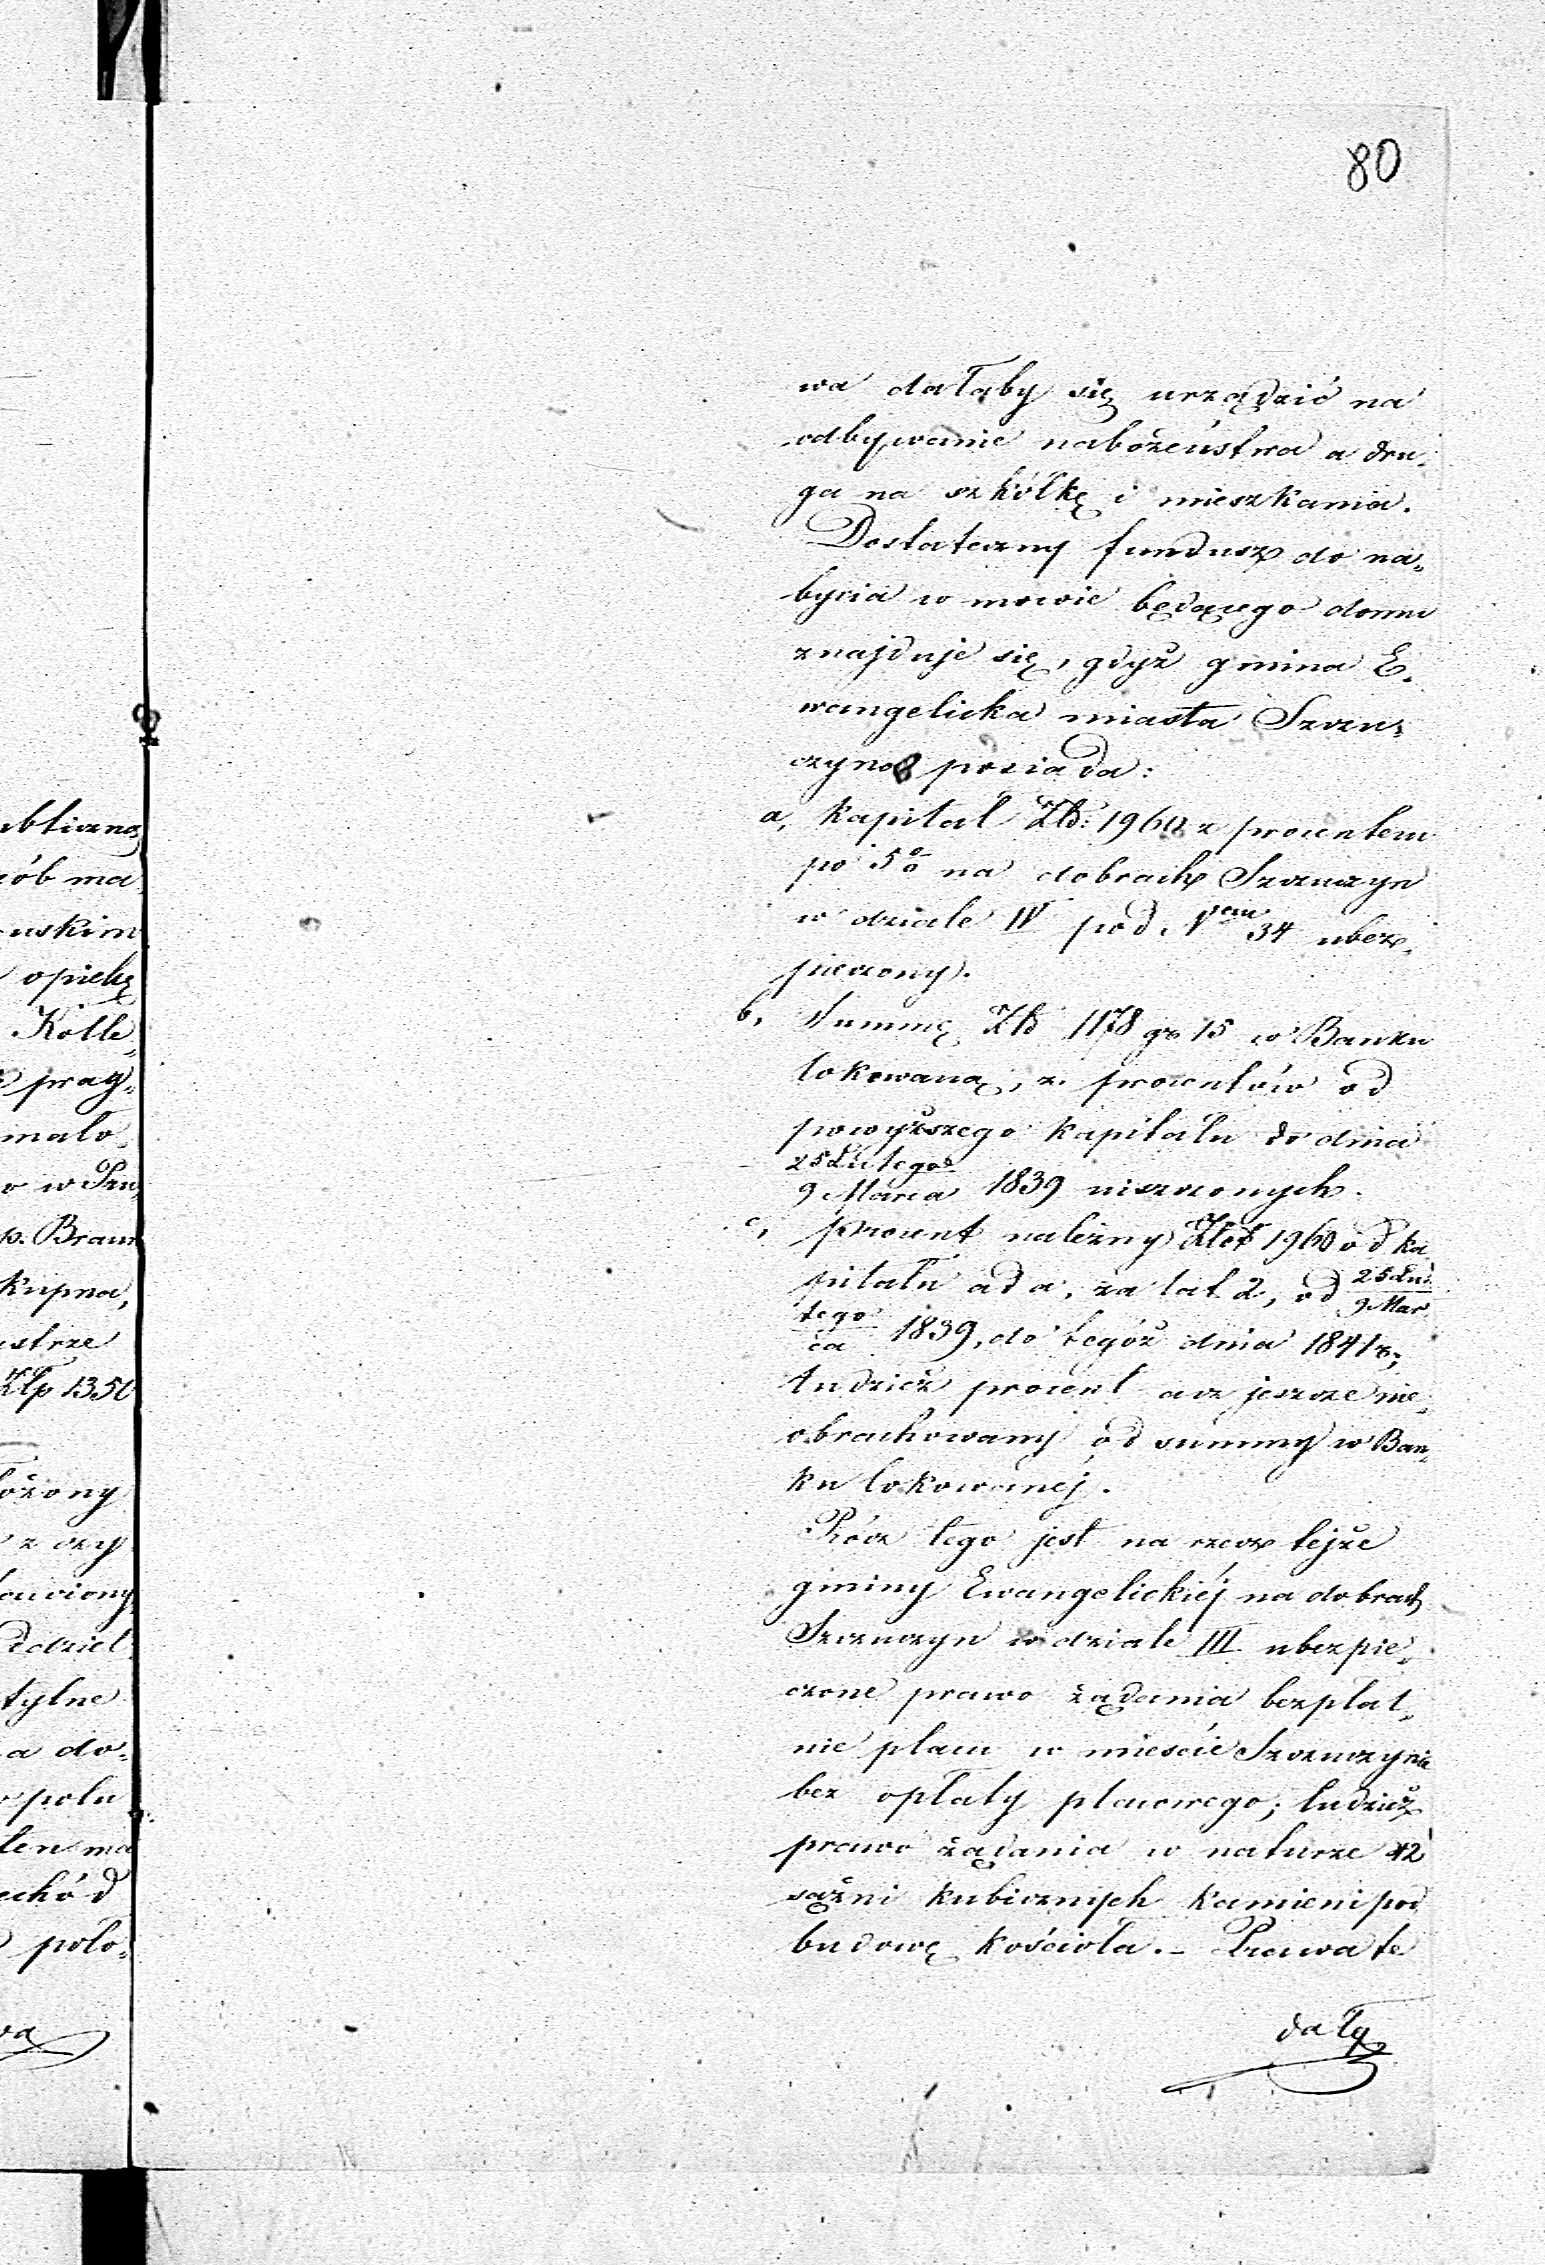 80
wa dałaby się urządzić na
odbywanie nabożeństwa a dru„
ga na szkółkę i mieszkania.
Dostateczny fundusz do na„
bycia w mowie będącego domu
znajduje się, gdyż gmina E„
wangelicka miasta Szczu„
czyna posiada:
a, Kapitał Złd: 1960 z procentem
po 5% na dobrach Szczuczyn
w dziale IV pod Nrem 34 ubez„
pieczony.
b, Summę Złd 1178 gr 15 w Banku
lokowaną, z procentów od
powyższego Kapitału do dnia
25 Lutego
9 Marca 1839 uiszczonych.
c, procent należny Złot 1960 od ka„
pitału ad a, za lat 2, od 25 Lu„
9 Mar„
tego
ca 1839, do tegóż dnia 1841 r.;
tudzież procent acz jeszcze nie„
obrachowany od summy w Ban„
ku lokowanéj.
Prócz tego jest na rzecz tejże
gminy Ewangelickiéj na dobrach
Szczuczyn w dziale III ubezpie„
czone prawo żądania bezpłat„
nie placu w mieście Szczuczynie
bez opłaty placowego; tudzież
prawo żądania w naturze 12
sążni kubicznych kamieni pod
budowę kościoła. – Prawa te
dałą
ubliczną
sób ma
uskim
opiekę
Kolle„
prag„
mało„
o w Pru„
p. Braun
kupna,
ustrze
Złp 1350
łożony
z czy
awiony
ddziel
tylne
a do„
polu
ten ma
chód
poło„
wa